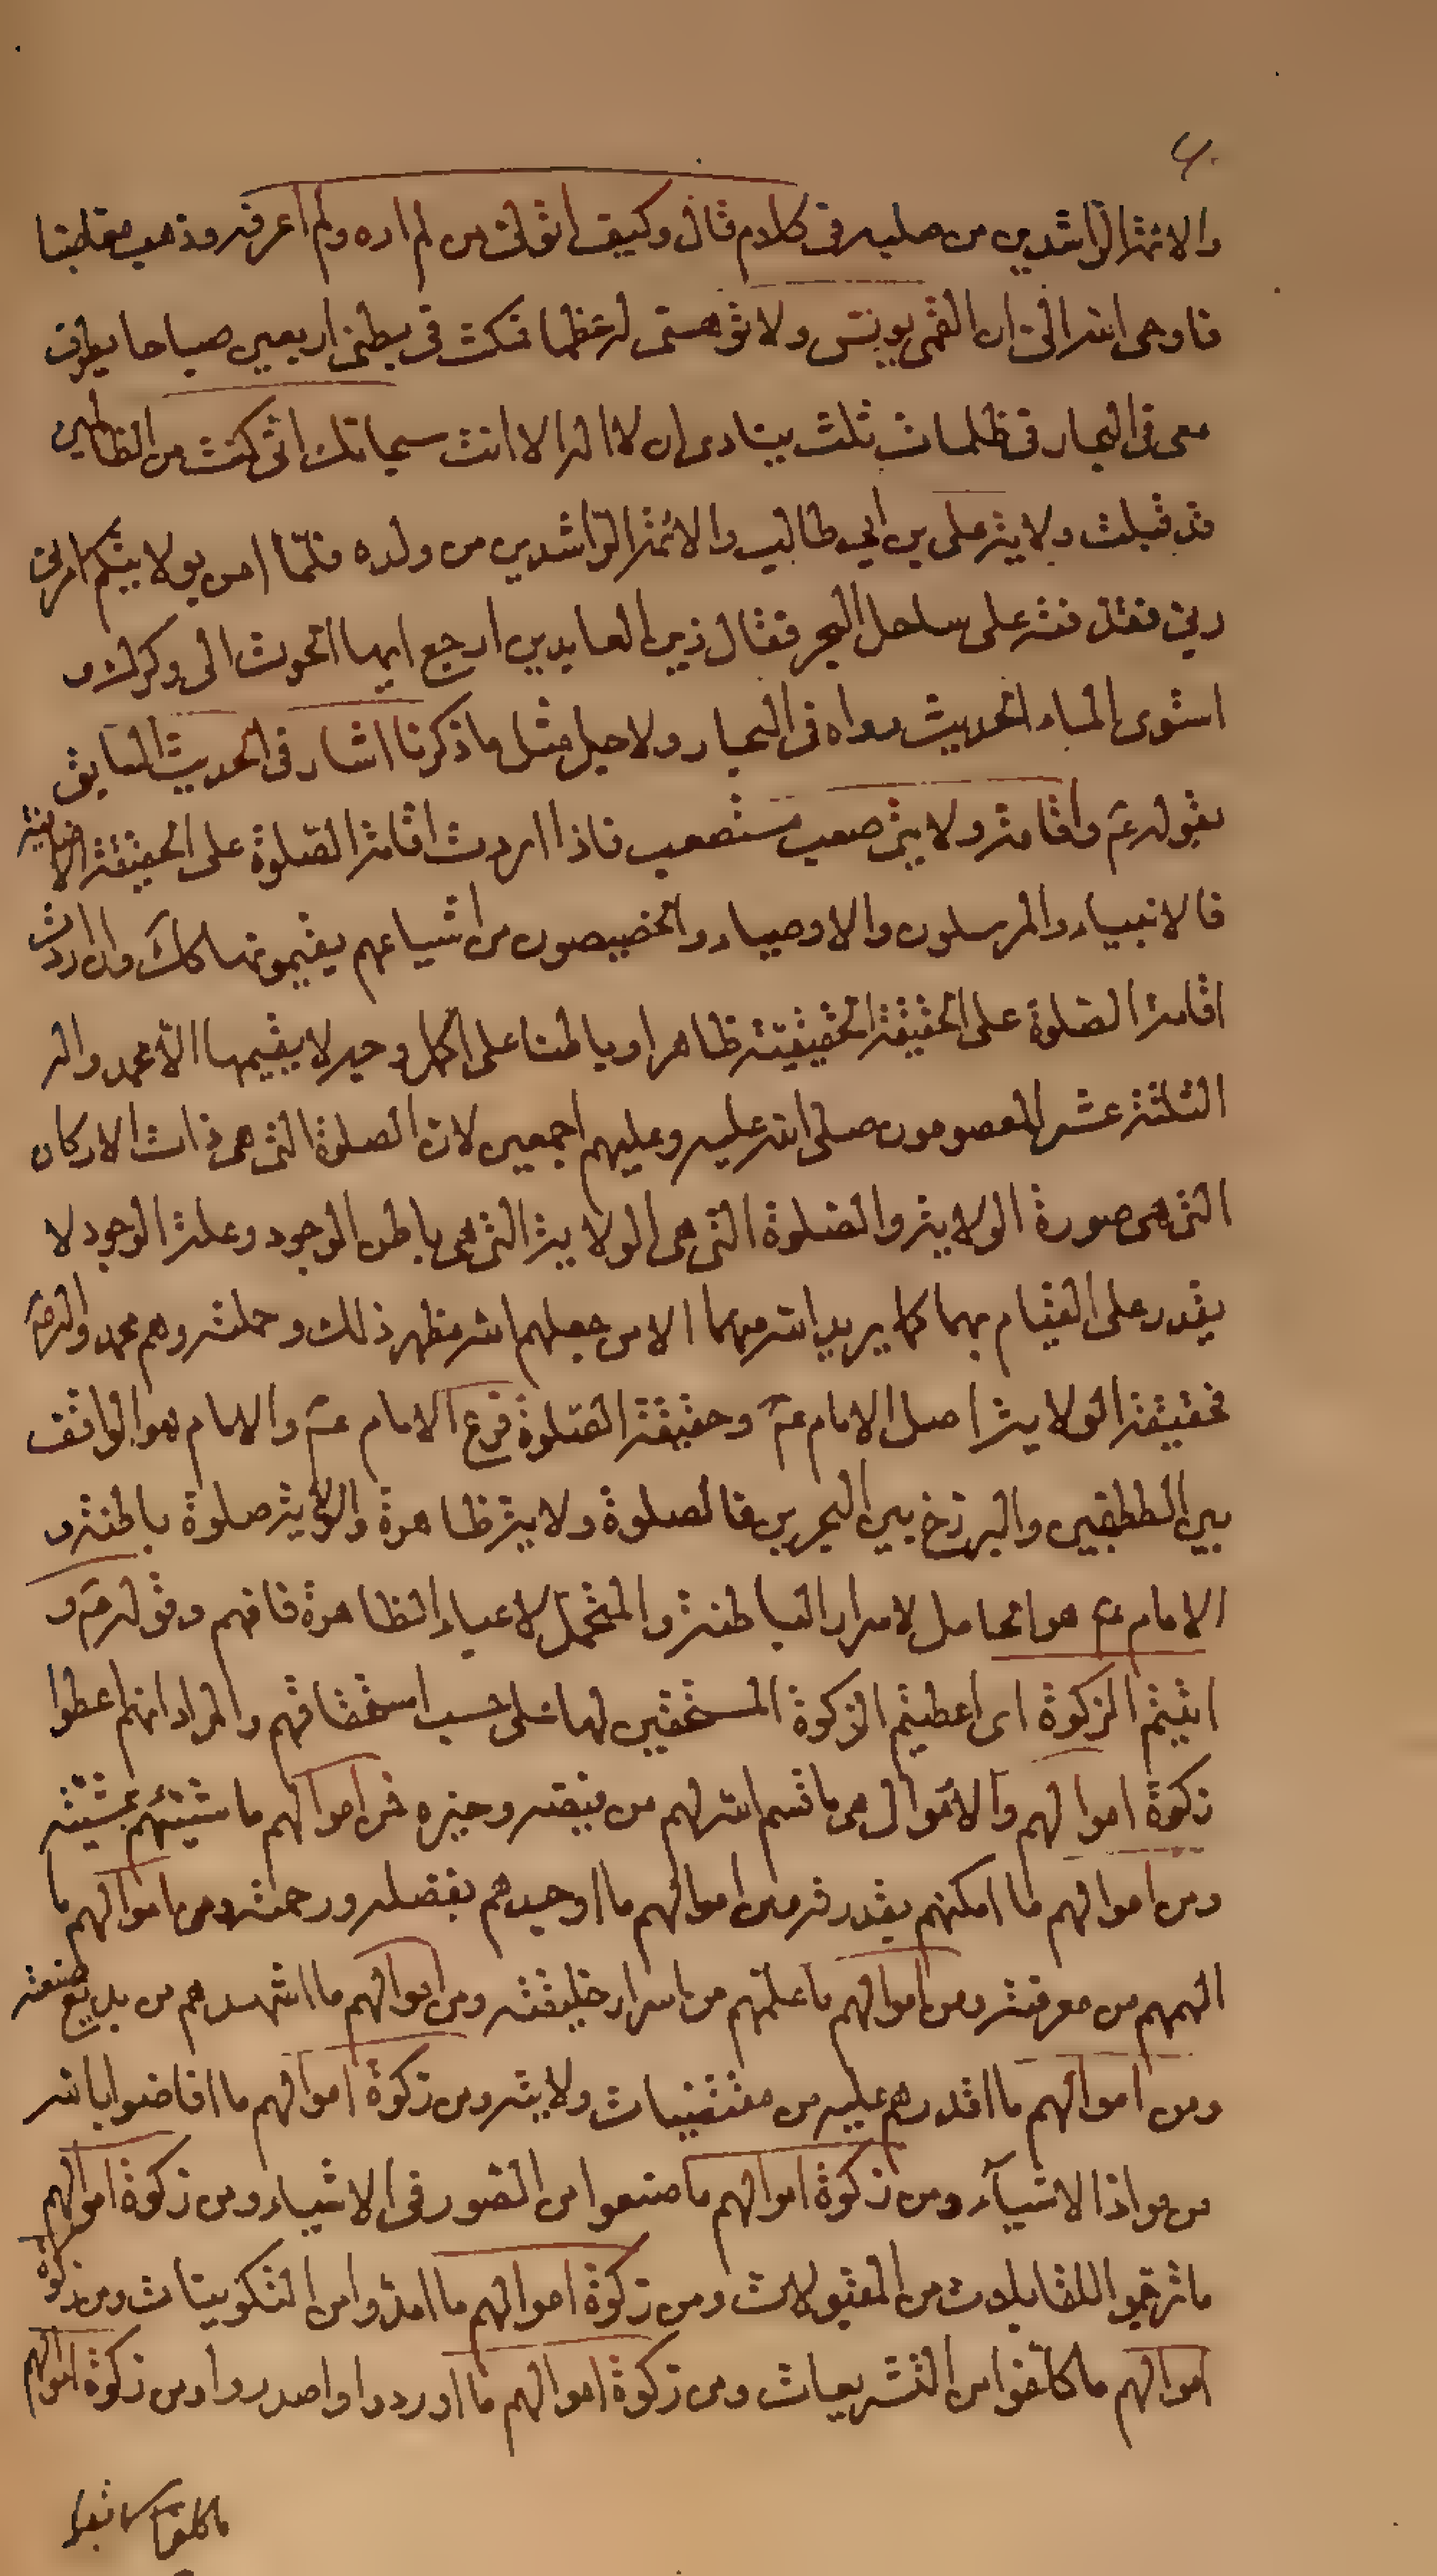 والائمة الراشدين من صلبه فی کلام قال وکیف اتولی من لم اره ولم اعرفه وذهب مغاضبا
فاوحی الله الی ان التقمی یونس ولا توهنی له عظما فمکث فی بطنی اربعین صباحا یطوف
معی فی البحار فی ظلمات ثلث ینادی ان لا اله الا انت سبحانک انی کنت من الظالمین
قد قبلت ولایة علی بن ابی طالب والائمة الراشدین من ولده فلما امن بولایتکم امرنی
ربی فقذفته علی ساحل البحر فقال زین العابدین ارجع ایها الحوت الی وکرک و
استوی الماء الحدیث رواه فی البحار ولاجل مثل ما ذکرنا اشار فی الحدیث السابق
بقوله عم واقامة ولایتی صعب مستصعب فاذا اردت اقامة الصلوة علی الحقیقة الاضافیة
فالانبیاء والمرسلون والاوصیاء والخصیصون من اشیاعهم یقیمونها کک وان اردت
اقامة الصلوة علی الحقیقة الحقیقیة ظاهرا وباطنا علی اکمل وجه لا یقیمها الا محمد واله
الثلثة عشر المعصومون صلی الله علیه وعلیهم اجمعین لان الصلوة التی هی ذات الارکان
التی هی صورة الولایة والصلوة التی هی الولایة التی هی باطن الوجود وعلة الوجود لا
یقدر علی القیام بهما کما یرید الله منهما الا من جعلهم الله مظهر ذلک وحملته وهم محمد واله ص
فحقیقة الولایة اصل الامام عم وحقیقة الصلوة فرع الامام عم والامام هو الواقف
بین الطتطنجین والبرزخ بین البحرین فالصلوة ولایة ظاهرة والولایة صلوة باطنة و
الامام عم هو الحامل لاسرار الباطنة والمتحمل لاعباء الظاهرة فافهم وقوله عم و
اتیتم الزکوة ای اعطیتم الزکوة المستحقین لها علی حسب استحقاقهم والمراد انهم اعطوا
زکوة اموالهم والاموال هی ما قسم الله لهم من فیضه وخیره فمن اموالهم ما شیئهم بمشیته
ومن اموالهم ما امکنهم بقدرته ومن اموالهم ما اوجدهم بفضله ورحمته ومن اموالهم ما
الهمهم من معرفته ومن اموالهم ما علمهم من اسرار خلیقته ومن اموالهم ما اشهدهم من بدیع صنعته
ومن اموالهم ما اقدرهم علیه من مقتضیات ولایته ومن زکوة اموالهم ما افاضوا بالله
من مواد الاشیآء ومن زکوة اموالهم ما صنعوا من الصور فی الاشیاء ومن زکوة اموالهم
ما ترجموا للقابلات من المقبولات ومن زکوة اموالهم ما امدوا من التکوینات ومن زکوة
اموالهم ما کلفوا من التشریعات ومن زکوة اموالهم ما اوردوا واصدروا ومن زکوة اموالهم